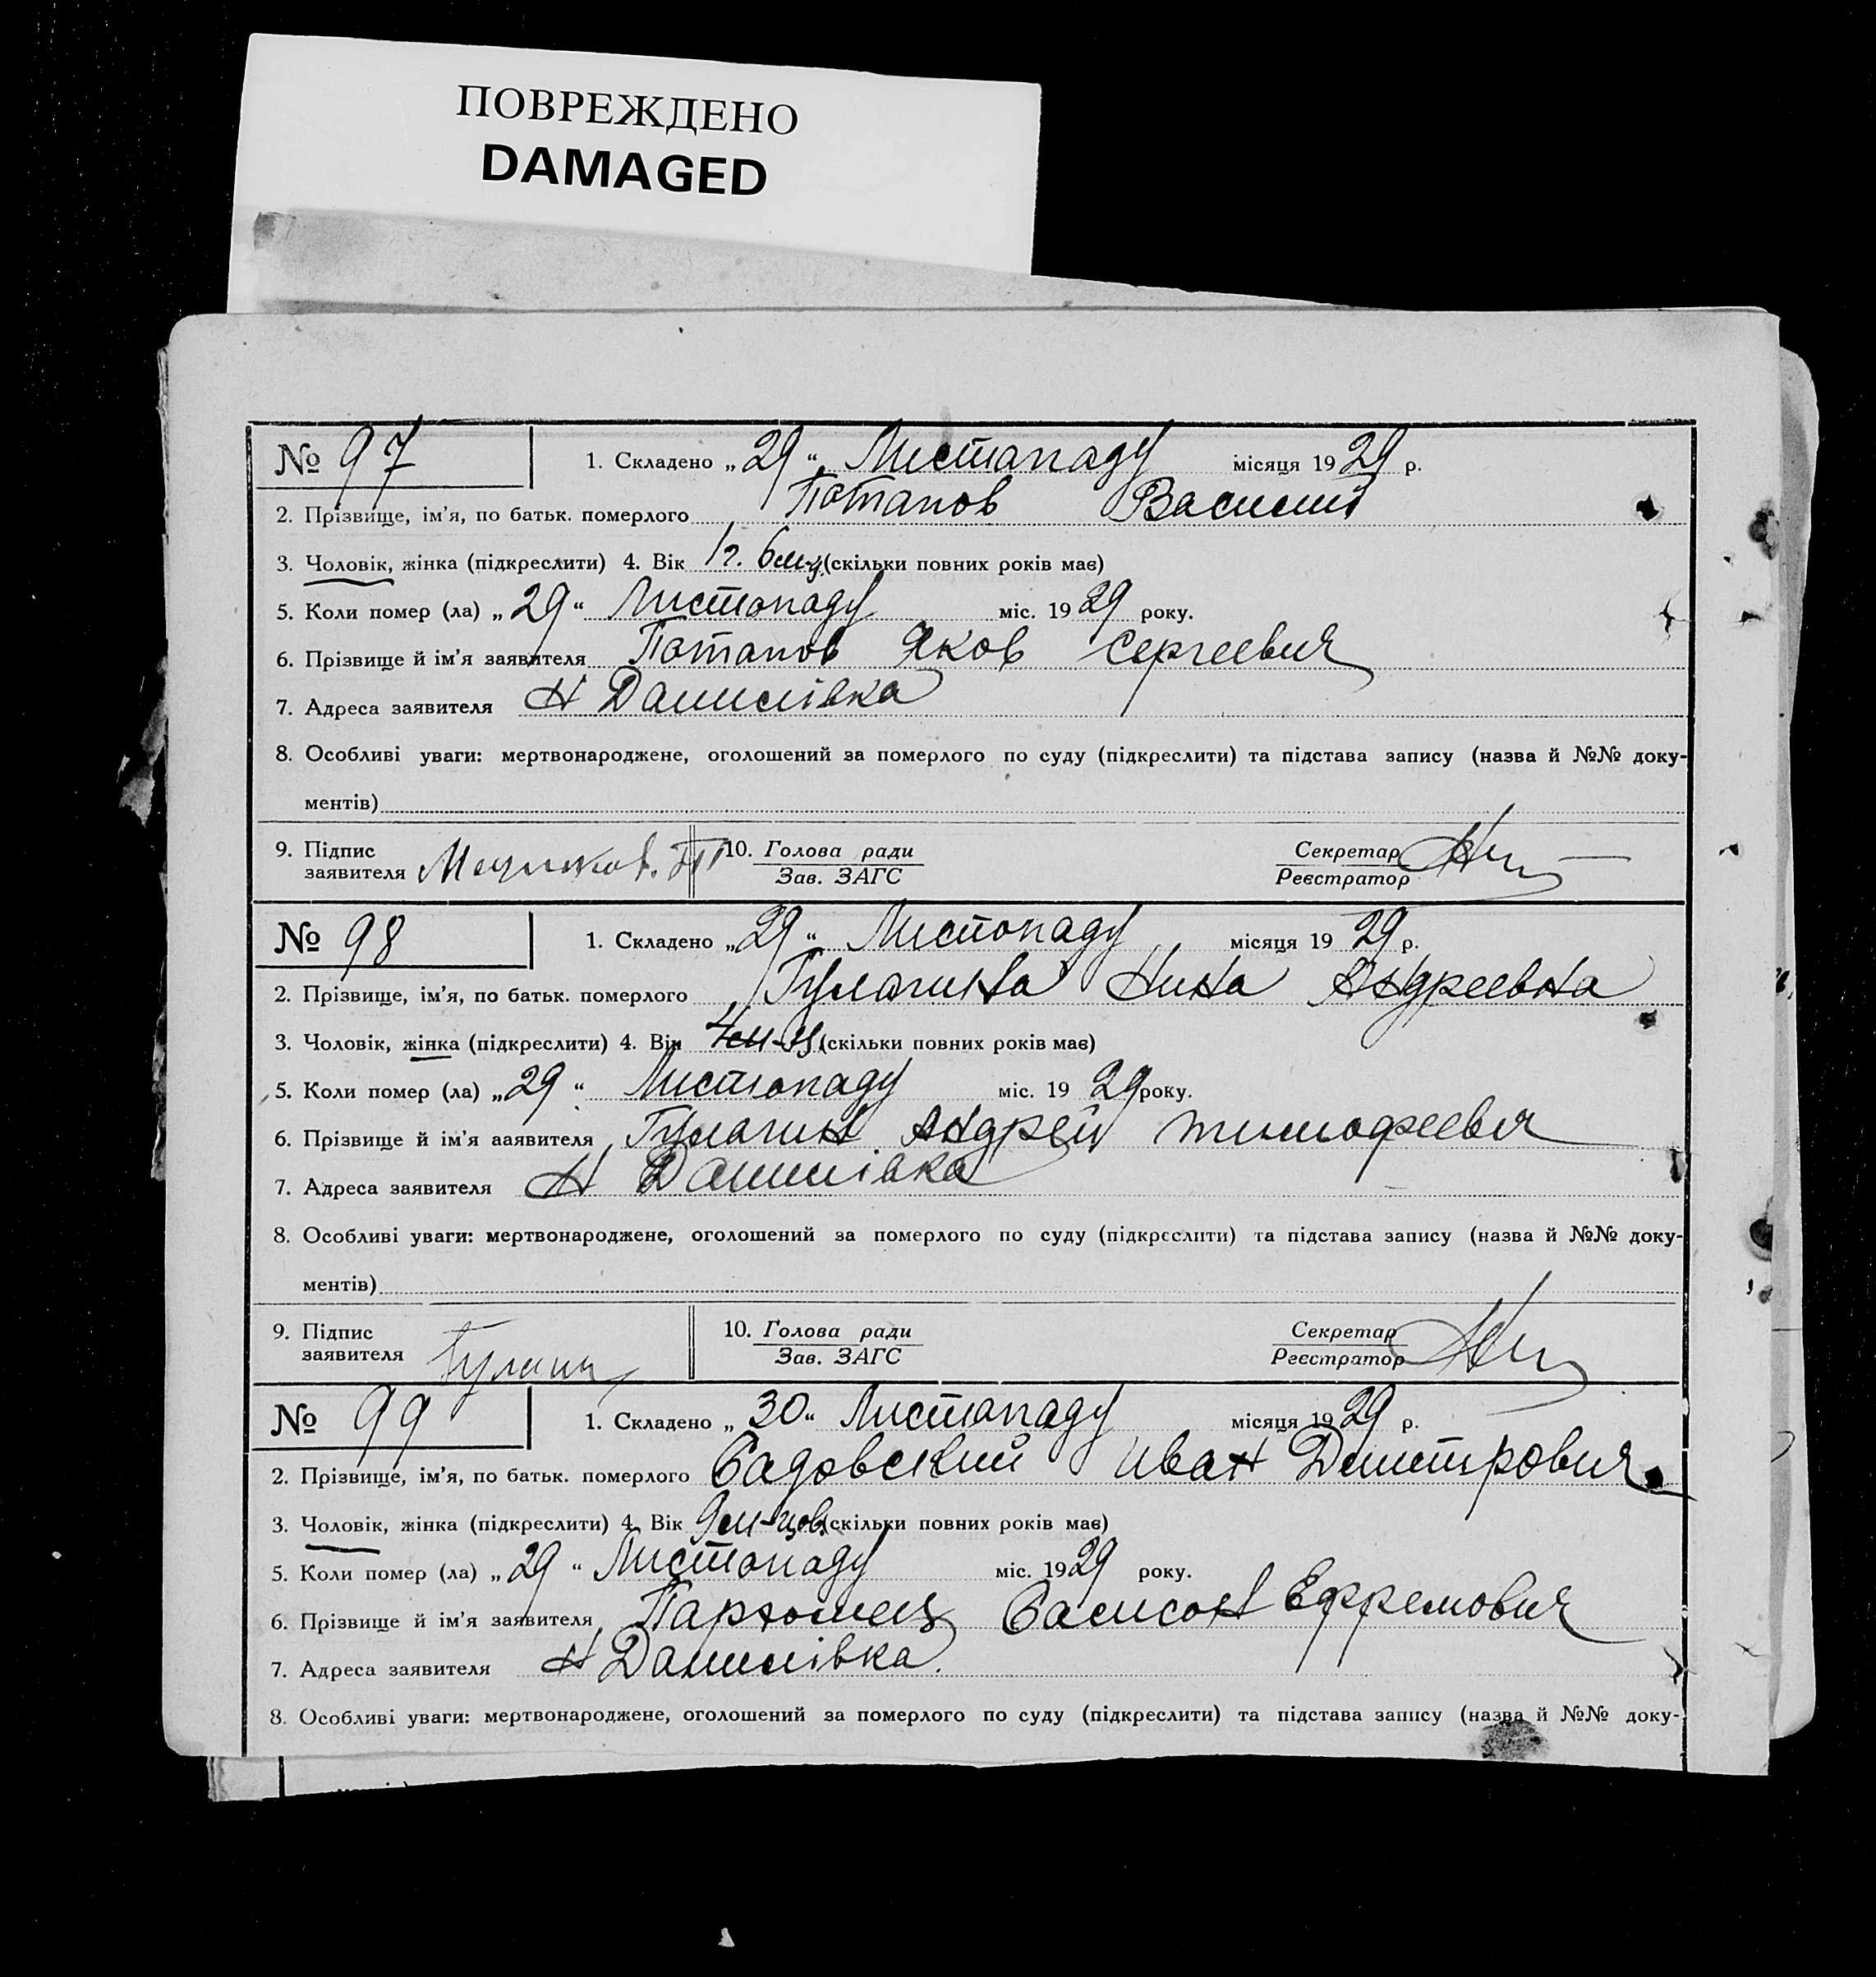 ПОВРЕЖДЕНО
DAMAGED
№ 97
1. Складено „29“ Листопаду місяця 1929 р.
2. Прізвище, ім'я, по батьк. померлого Потапов Василий
3. Чоловік, жінка (підкреслити) 4. Вік 1 г. 6 м-ц. (скільки повних років має)
5. Коли помер (ла) „29“ Листопаду міс. 1929 року.
6. Прізвище й ім'я заявителя Потапов Яков Сергеевич
7. Адреса заявителя Н Данилівка
8. Особливі уваги: мертвонароджене, оголошений за померлого по суду (підкреслити) та підстава запису (назва й №№ доку-
ментів)
9. Підпис заявителя
10. Голова ради
Зав. ЗАГС
Секретар
Реєстратор
№ 98
1. Складено „29“ Листопаду місяця 1929 р.
2. Прізвище, ім'я, по батьк. померлого Гулагина Нина Андреевна
3. Чоловік, жінка (підкреслити) 4. Вік 4 м-ц. (скільки повних років має)
5. Коли помер (ла) „29“ Листопаду міс. 1929 року.
6. Прізвище й ім'я ааявителя Гулагин Андрей Тимофеевич
7. Адреса заявителя Н Данилівка
8. Особливі уваги: мертвонароджене, оголошений за померлого по суду (підкреслити) та підстава запису (назва й №№ доку-
ментів)
9. Підпис заявителя
10. Голова ради
Зав. ЗАГС
Секретар
Реєстратор
№ 99
1. Складено „30“ Листопаду місяця 1929 р.
2. Прізвище, ім'я, по батьк. померлого Садовский Иван Дмитрович
3. Чоловік, жінка (підкреслити) 4. Вік 9 м-цов (скільки повних років має)
5. Коли помер (ла) „29“ Листопаду міс. 1929 року.
6. Прізвище й ім'я заявителя Пархомец Самсон Ефремович
7. Адреса заявителя Н Данилівка.
8. Особливі уваги: мертвонароджене, оголошений за померлого по суду (підкреслити) та підстава запису (назва й №№ доку-